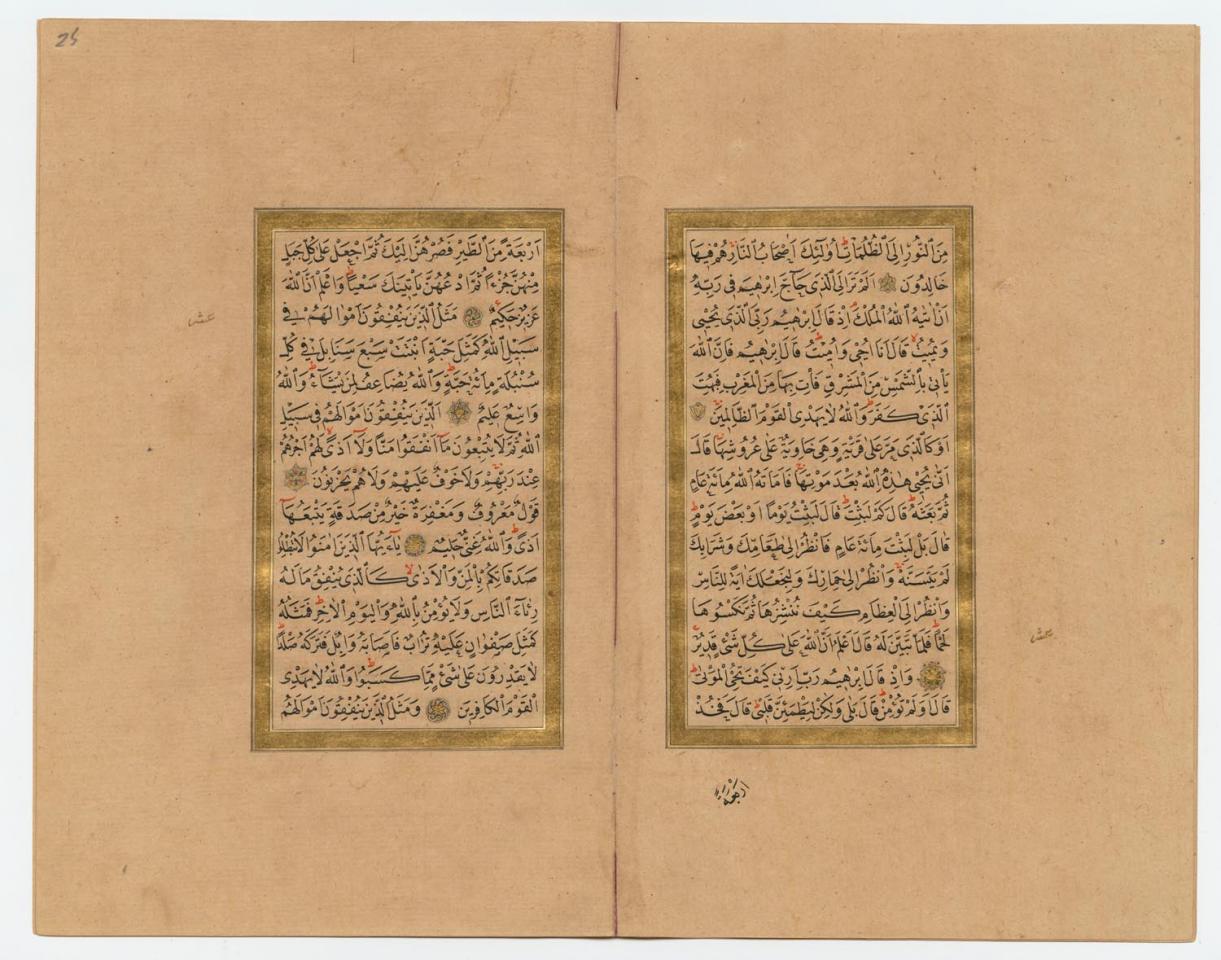 مِنَ النُّورِ إِلَى الظُّلُمَاتِ أُولٰئِكَ أَصْحَابُ النَّارِ هُمْ فِيهَا
خَالِدُونَ اَلَمْ تَرَ اِلَى الَّذِى حَاجَّ اِبْرٰهِيمَ فِى رَبِّهِ
اَنْ اٰتٰيهُ اللّٰهُ الْمُلْكَ اِذْ قَالَ اِبْرٰهِيمُ رَبِّىَ الَّذِى يُحْيِى
وَيُمِيتُ قَالَ اَنَا اُحْيِى وَاُمِيتُ قَالَ اِبْرٰهِيمُ فَاِنَّ اللّٰهَ
يَأْتِى بِالشَّمْسِ مِنَ الْمَشْرِقِ فَأْتِ بِهَا مِنَ الْمَغْرِبِ فَبُهِتَ
الَّذِى كَفَرَ وَاللّٰهُ لَا يَهْدِى الْقَوْمَ الظَّالِمِينَ
اَوْ كَالَّذِى مَرَّ عَلٰى قَرْيَةٍ وَهِىَ خَاوِيَةٌ عَلٰى عُرُوشِهَا قَالَ
اَنّٰى يُحْيِى هٰذِهِ اللّٰهُ بَعْدَ مَوْتِهَا فَاَمَاتَهُ اللّٰهُ مِائَةَ عَامٍ
ثُمَّ بَعَثَهُ قَالَ كَمْ لَبِثْتَ قَالَ لَبِثْتُ يَوْمًا اَوْ بَعْضَ يَوْمٍ
قَالَ بَلْ لَبِثْتَ مِائَةَ عَامٍ فَانْظُرْ اِلٰى طَعَامِكَ وَشَرَابِكَ
لَمْ يَتَسَنَّهْ وَانْظُرْ اِلٰى حِمَارِكَ وَلِنَجْعَلَكَ اٰيَةً لِلنَّاسِ
وَانْظُرْ اِلَى الْعِظَامِ كَيْفَ نُنْشِزُهَا ثُمَّ نَكْسُوهَا
لَحْمًا فَلَمَّا تَبَيَّنَ لَهُ قَالَ اَعْلَمُ اَنَّ اللّٰهَ عَلٰى كُلِّ شَىْءٍ قَدِيرٌ
وَاِذْ قَالَ اِبْرٰهِيمُ رَبِّ اَرِنِى كَيْفَ تُحْيِى الْمَوْتٰى
قَالَ اَوَلَمْ تُؤْمِنْ قَالَ بَلٰى وَلٰكِنْ لِيَطْمَئِنَّ قَلْبِى قَالَ فَخُذْ
اَرْبَعَةً مِنَ
25
اَرْبَعَةً مِنَ الطَّيْرِ فَصُرْهُنَّ اِلَيْكَ ثُمَّ اجْعَلْ عَلٰى كُلِّ جَبَلٍ
مِنْهُنَّ جُزْءًا ثُمَّ ادْعُهُنَّ يَأْتِينَكَ سَعْيًا وَاعْلَمْ اَنَّ اللّٰهَ
عَزِيزٌ حَكِيمٌ مَثَلُ الَّذِينَ يُنْفِقُونَ اَمْوَالَهُمْ فِى
سَبِيلِ اللّٰهِ كَمَثَلِ حَبَّةٍ اَنْبَتَتْ سَبْعَ سَنَابِلَ فِى كُلِّ
سُنْبُلَةٍ مِائَةُ حَبَّةٍ وَاللّٰهُ يُضَاعِفُ لِمَنْ يَشَاءُ وَاللّٰهُ
وَاسِعٌ عَلِيمٌ اَلَّذِينَ يُنْفِقُونَ اَمْوَالَهُمْ فِى سَبِيلِ
اللّٰهِ ثُمَّ لَا يُتْبِعُونَ مَا اَنْفَقُوا مَنًّا وَلَا اَذًى لَهُمْ اَجْرُهُمْ
عِنْدَ رَبِّهِمْ وَلَا خَوْفٌ عَلَيْهِمْ وَلَا هُمْ يَحْزَنُونَ
قَوْلٌ مَعْرُوفٌ وَمَغْفِرَةٌ خَيْرٌ مِنْ صَدَقَةٍ يَتْبَعُهَا
اَذًى وَاللّٰهُ غَنِىٌّ حَلِيمٌ يَاءَيُّهَا الَّذِينَ اٰمَنُوا لَا تُبْطِلُوا
صَدَقَاتِكُمْ بِالْمَنِّ وَالْاَذٰى كَالَّذِى يُنْفِقُ مَالَهُ
رِئَاءَ النَّاسِ وَلَا يُؤْمِنُ بِاللّٰهِ وَالْيَوْمِ الْاٰخِرِ فَمَثَلُهُ
كَمَثَلِ صَفْوَانٍ عَلَيْهِ تُرَابٌ فَاَصَابَهُ وَابِلٌ فَتَرَكَهُ صَلْدًا
لَا يَقْدِرُونَ عَلٰى شَىْءٍ مِمَّا كَسَبُوا وَاللّٰهُ لَا يَهْدِى
الْقَوْمَ الْكَافِرِينَ وَمَثَلُ الَّذِينَ يُنْفِقُونَ اَمْوَالَهُمُ